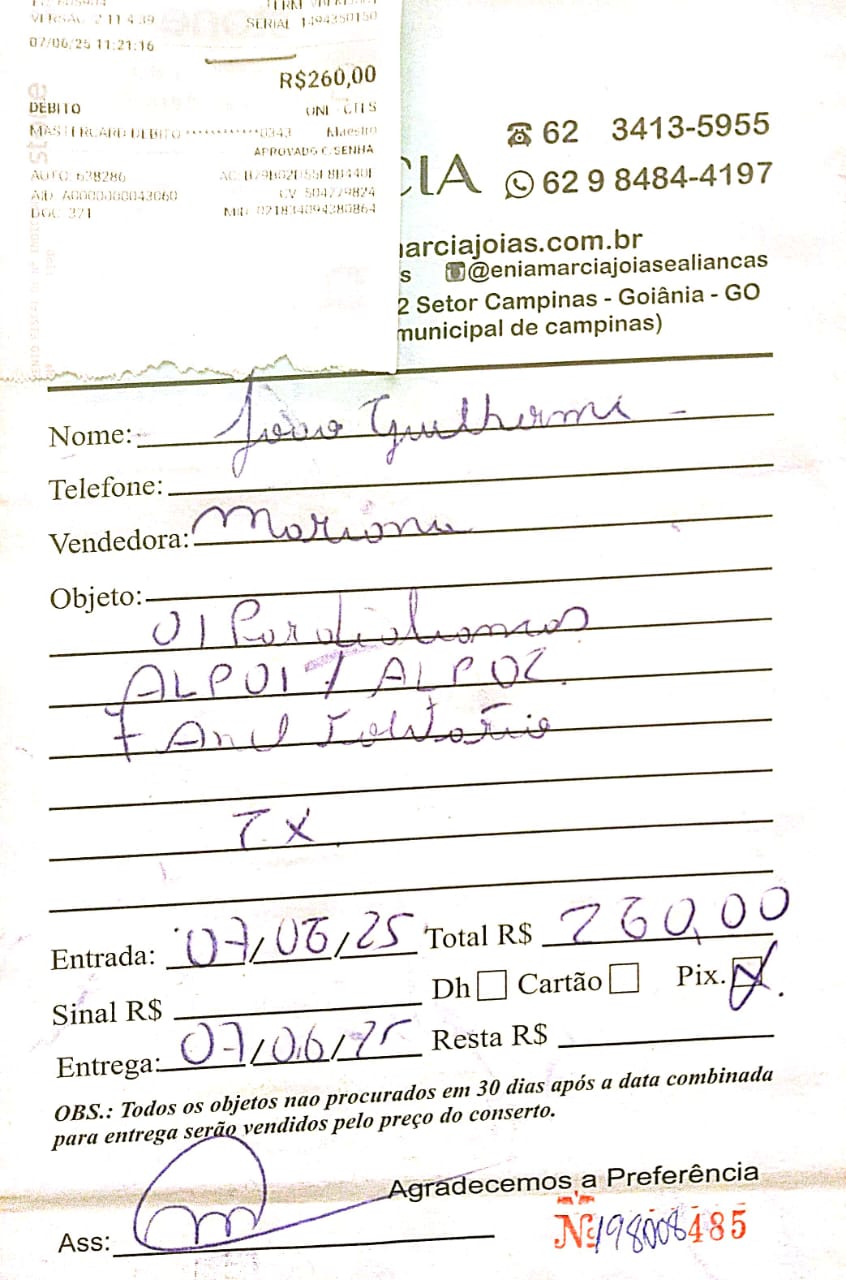 VERSAO 2 11 4.39
SERIAL 1494350150
07/06/25 11:21:16
R$260,00
DEBITO
MASTERCARD DEBITO ************0343 Maestro
APROVADO C. SENHA
AUTO: 628286
AID: A0000000043060
CV: 504779824
DOC: 371
stone
CIA
62 3413-5955
62 9 8484-4197
arciajoias.com.br
s @eniamarciajoiasealiancas
2 Setor Campinas - Goiânia - GO
municipal de campinas)
Nome: João Guilherme
Telefone:
Vendedora: Mariana
Objeto:
01 Par alianças
ALP01 / ALP02.
+ Anel Solitário
Entrada: 07/06/25 Total R$ 260,00
Sinal R$ Dh Cartão Pix.
Entrega: 07/06/25 Resta R$
OBS.: Todos os objetos nao procurados em 30 dias após a data combinada
para entrega serão vendidos pelo preço do conserto.
Agradecemos a Preferência
Ass:
Nº 485